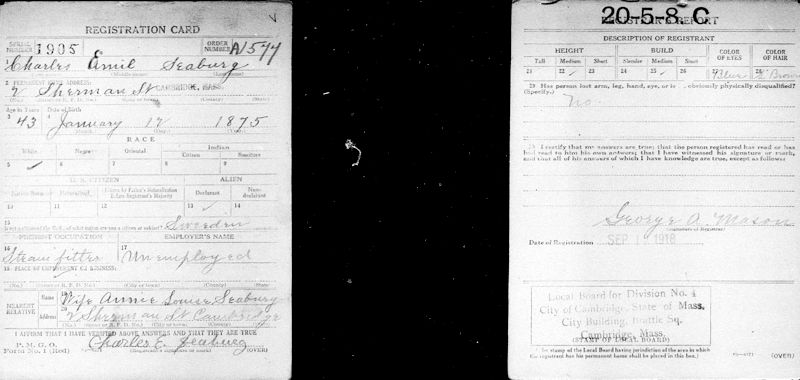 REGISTRATION CARD
SERIAL NUMBER 1905 ORDER NUMBER A1577
1 Charles Emil Seaburg
(Middle name)
2 PERMANENT HOME ADDRESS:
2 Sherman St CAMBRIDGE, MASS.
(No.) (Street or R. F. D. No.) (City or town) (County) (State)
Age in Years Date of Birth
3 43 4 January 12 1875
(Month.) (Day.) (Year.)
RACE
White Negro Oriental Indian
Citizen Noncitizen
5 ✓ 6 7 8 9
U. S. CITIZEN ALIEN
Native Born Naturalized Citizen by Father's Naturalization Before Registrant's Majority Declarant Non-declarant
10 11 12 13 ✓ 14
15
If not a citizen of the U.S., of what nation are you a citizen or subject? Sweeden
PRESENT OCCUPATION EMPLOYER'S NAME
16 Steam fitter 17 Unemployed
18 PLACE OF EMPLOYMENT OR BUSINESS:
(No.) (Street or R. F. D. No.) (City or town) (County) (State)
NEAREST RELATIVE Name 19 Wife Annie Louise Seaburg
Address 20 2 Sherman St Cambridge
(No.) (Street or R. F. D. No.) (City or town) (County) (State)
I AFFIRM THAT I HAVE VERIFIED ABOVE ANSWERS AND THAT THEY ARE TRUE
P. M. G. O.
Form No. 1 (Red) Charles E. Seaburg
(Registrant's signature or mark) (OVER)
20-5-8 C
REGISTRAR'S REPORT
DESCRIPTION OF REGISTRANT
HEIGHT BUILD COLOR OF EYES COLOR OF HAIR
Tall Medium Short Slender Medium Stout
21 22 ✓ 23 24 25 ✓ 26 27 Blue 28 Brown
29 Has person lost arm, leg, hand, eye, or is obviously physically disqualified?
(Specify.) No.
30 I certify that my answers are true; that the person registered has read or has
had read to him his own answers; that I have witnessed his signature or mark,
and that all of his answers of which I have knowledge are true, except as follows:
George A. Mason
(Signature of Registrar)
Date of Registration SEP 1 1918
Local Board for Division No. 4
City of Cambridge, State of Mass.
City Building, Brattle Sq.
Cambridge, Mass.
(STAMP OF LOCAL BOARD)
The stamp of the Local Board having jurisdiction of the area in which
the registrant has his permanent home shall be placed in this box.)
(OVER)